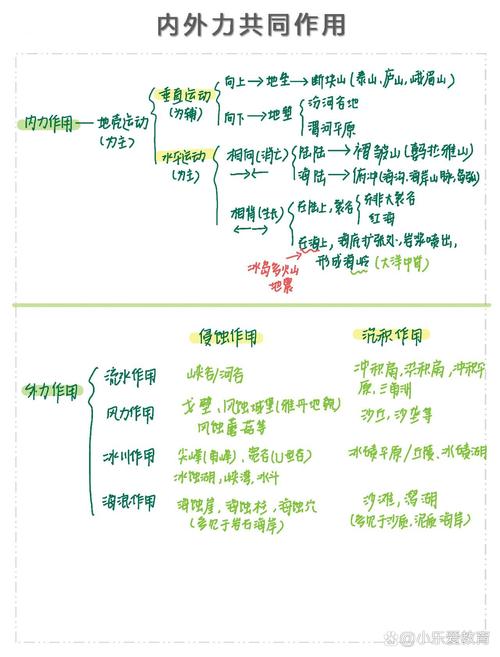 内外力共同作用
内力作用 — 地壳运动(为主)
垂直运动(为辅)
向上→地垒→断块山(泰山、庐山、峨眉山)
向下→地堑
汾河谷地
渭河平原
水平运动(为主)
相向(消亡)
陆陆→褶皱山(喜马拉雅山)
海陆→俯冲(海沟、海岸山脉、岛弧)
相背(生长)
在陆上,裂谷
东非大裂谷
红海
在海上,海底扩张处,岩浆喷出,
形成海岭(大洋中脊)
冰岛多火山
地震
侵蚀作用
沉积作用
外力作用
流水作用
峡谷/河谷
冲积扇,洪积扇,冲积平
原,三角洲
风力作用
戈壁、风蚀城堡(雅丹地貌)
风蚀蘑菇等
沙丘,沙垄等
冰川作用
尖峰(角峰)、
冰蚀湖,峡湾,冰斗
冰碛平原/丘陵、冰碛湖
海浪作用
海蚀崖,海蚀柱,海蚀穴
(多见于岩石海岸)
沙滩,潟湖
(多见于沙质,泥质海岸)
@小乐爱教育